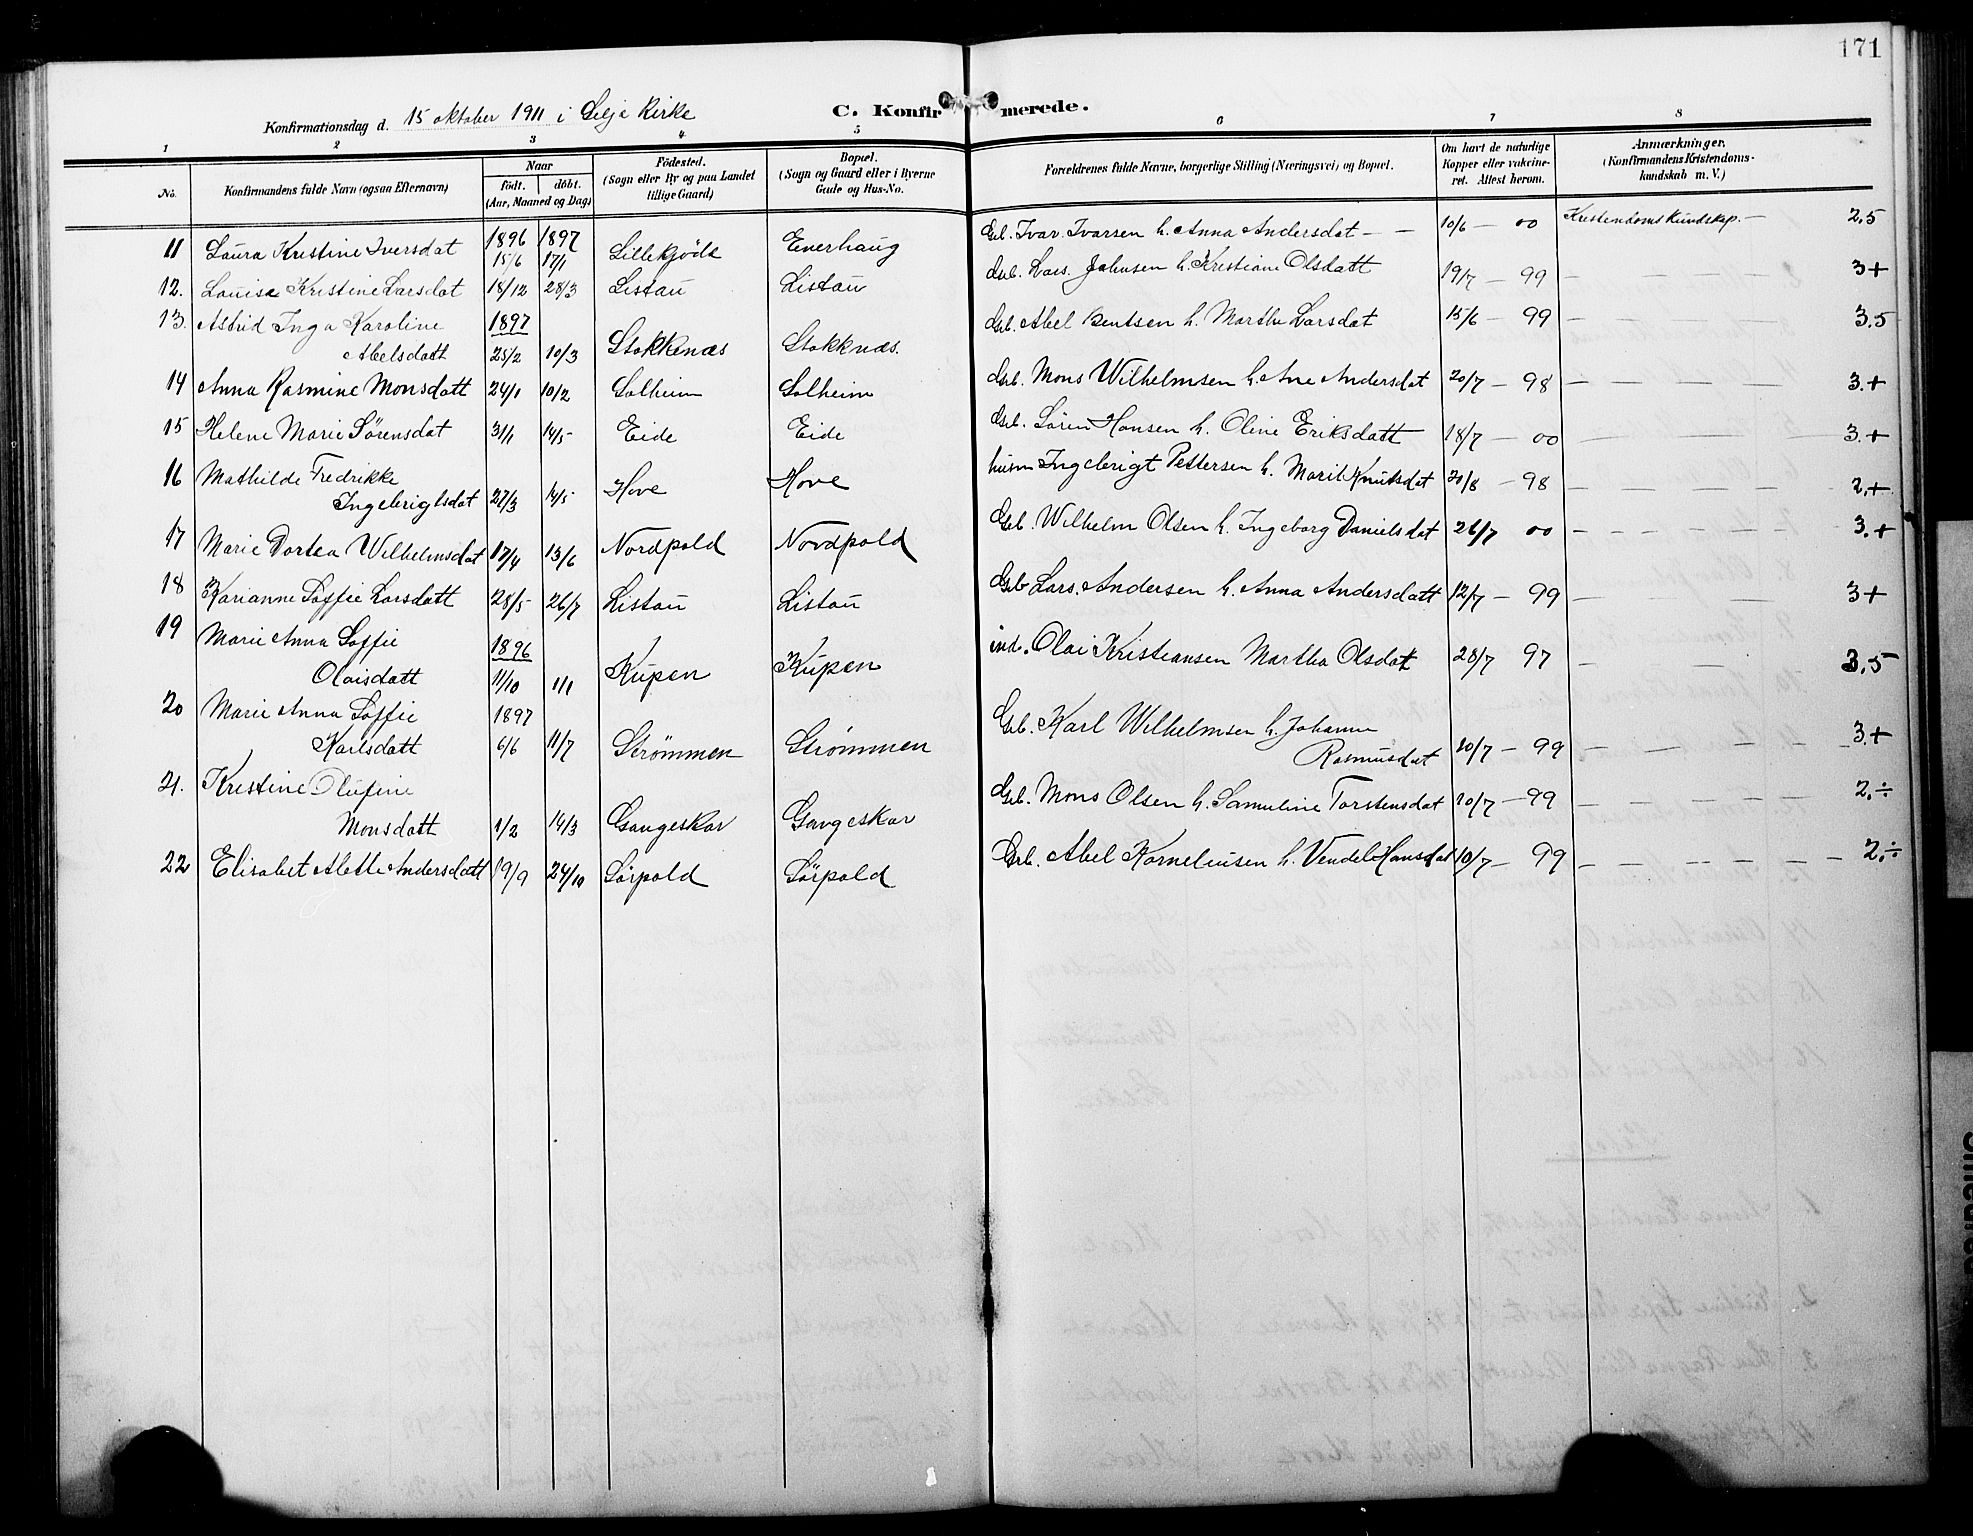 171
Konfirmationsdag d. 15 oktober 1911 i Selje Kirke
C. Konfirmerede.
1 2 3 4 5 6 7 8
No. Konfirmandens fulde Navn (ogsaa Efternavn) Naar født. døbt. (Aar, Maaned og Dag) Fødested. (Sogn eller By og paa Landet tillige Gaard) Bopæl. (Sogn og Gaard eller i Byerne Gade og Hus-No. Forældrenes fulde Navne, borgerlige Stilling (Næringsvei) og Bopæl. Om havt de naturlige Kopper eller vakcineret. Attest herom. Anmærkninger. (Konfirmandens Kristendomskundskab m. V.)
11 Laura Kristine Iversdat 1896 15/6 1897 17/1 Enerhaug Gb. Ivar Ivarsen h. Anna Andersdat 10/6 — 00 Kristendomskundskap. — 2,5
12. Louise Kristine Larsdat 18/12 28/3 Listau Listau Gb. Lars Johnsen h. Kristiane Olsdatt 19/7 — 99 — 3+
13. Astrid Inga Karoline 1897
Abelsdatt 25/2 10/3 Stokkenæs Stokknæs. Gb. Abel Bentsen h. Marthe Larsdat 15/6 — 99 — 3.5
14 Anna Rasmine Monsdatt 24/1 10/2 Solheim Solheim Gb. Mons Wilhelmsen h. Ane Andersdat 20/7 — 98 — 3.+
15 Helene Marie Sørensdat 31/1 14/5 Eide Eide Gb. Søren Hansen h. Oline Eriksdatt 18/7 — 00 — 3.+
16 Mathilde Fredrikke
Ingebrigtsdat 27/3 14/5 Hove Hove husm Ingebrigt Pettersen h. Marit Knutsdat 20/8 — 98 — 2.+
17 Marie Dortea Wilhelmsdat 17/4 13/6 Nordpold Nordpold Gb. Wilhelm Olsen h. Ingeborg Danielsdat 26/7 00 — 3.+
18 Karianne Soffie Larsdatt 28/5 26/7 Listau Listau Gb Lars Andersen h. Anna Andersdatt 12/7 — 99 — 3+
19 Marie Anna Soffie 1896
Olaisdatt 11/10 1/1 Kupen Kupen ind. Olai Kristiansen Martha Olsdat 28/7 97 — 3,5
20 Marie Anna Soffie 1897
Karlsdatt 6/6 11/7 Strømmen Strømmen Gb. Karl Wilhelmsen h. Johanne
Rasmusdat 10/7 — 99 — 3.+
21. Kristine Olufine
Monsdatt 1/2 14/3 Gangeskar Gangeskar Gb. Mons Olsen h. Samuline Torstensdat 10/7 — 99 — 2.÷
22 Elisabet Alette Andersdatt 19/9 24/10 Sørpold Sørpold Gb. Abel Korneliusen h. Vendel Hansdat 10/7 — 99 — 2.÷